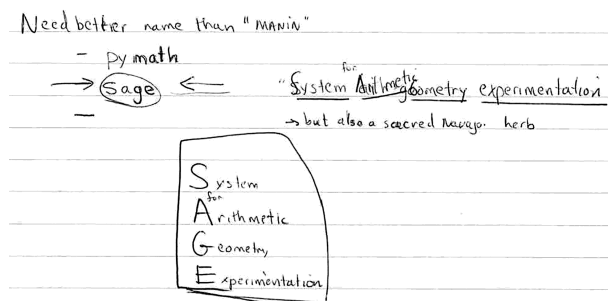 Need better name than "MANIN"
- pymath
→ Sage ←
"System for Arithmetic geometry experimentation
→ but also a sacred Navajo. herb
-
System
for
Arithmetic
Geometry
Experimentation